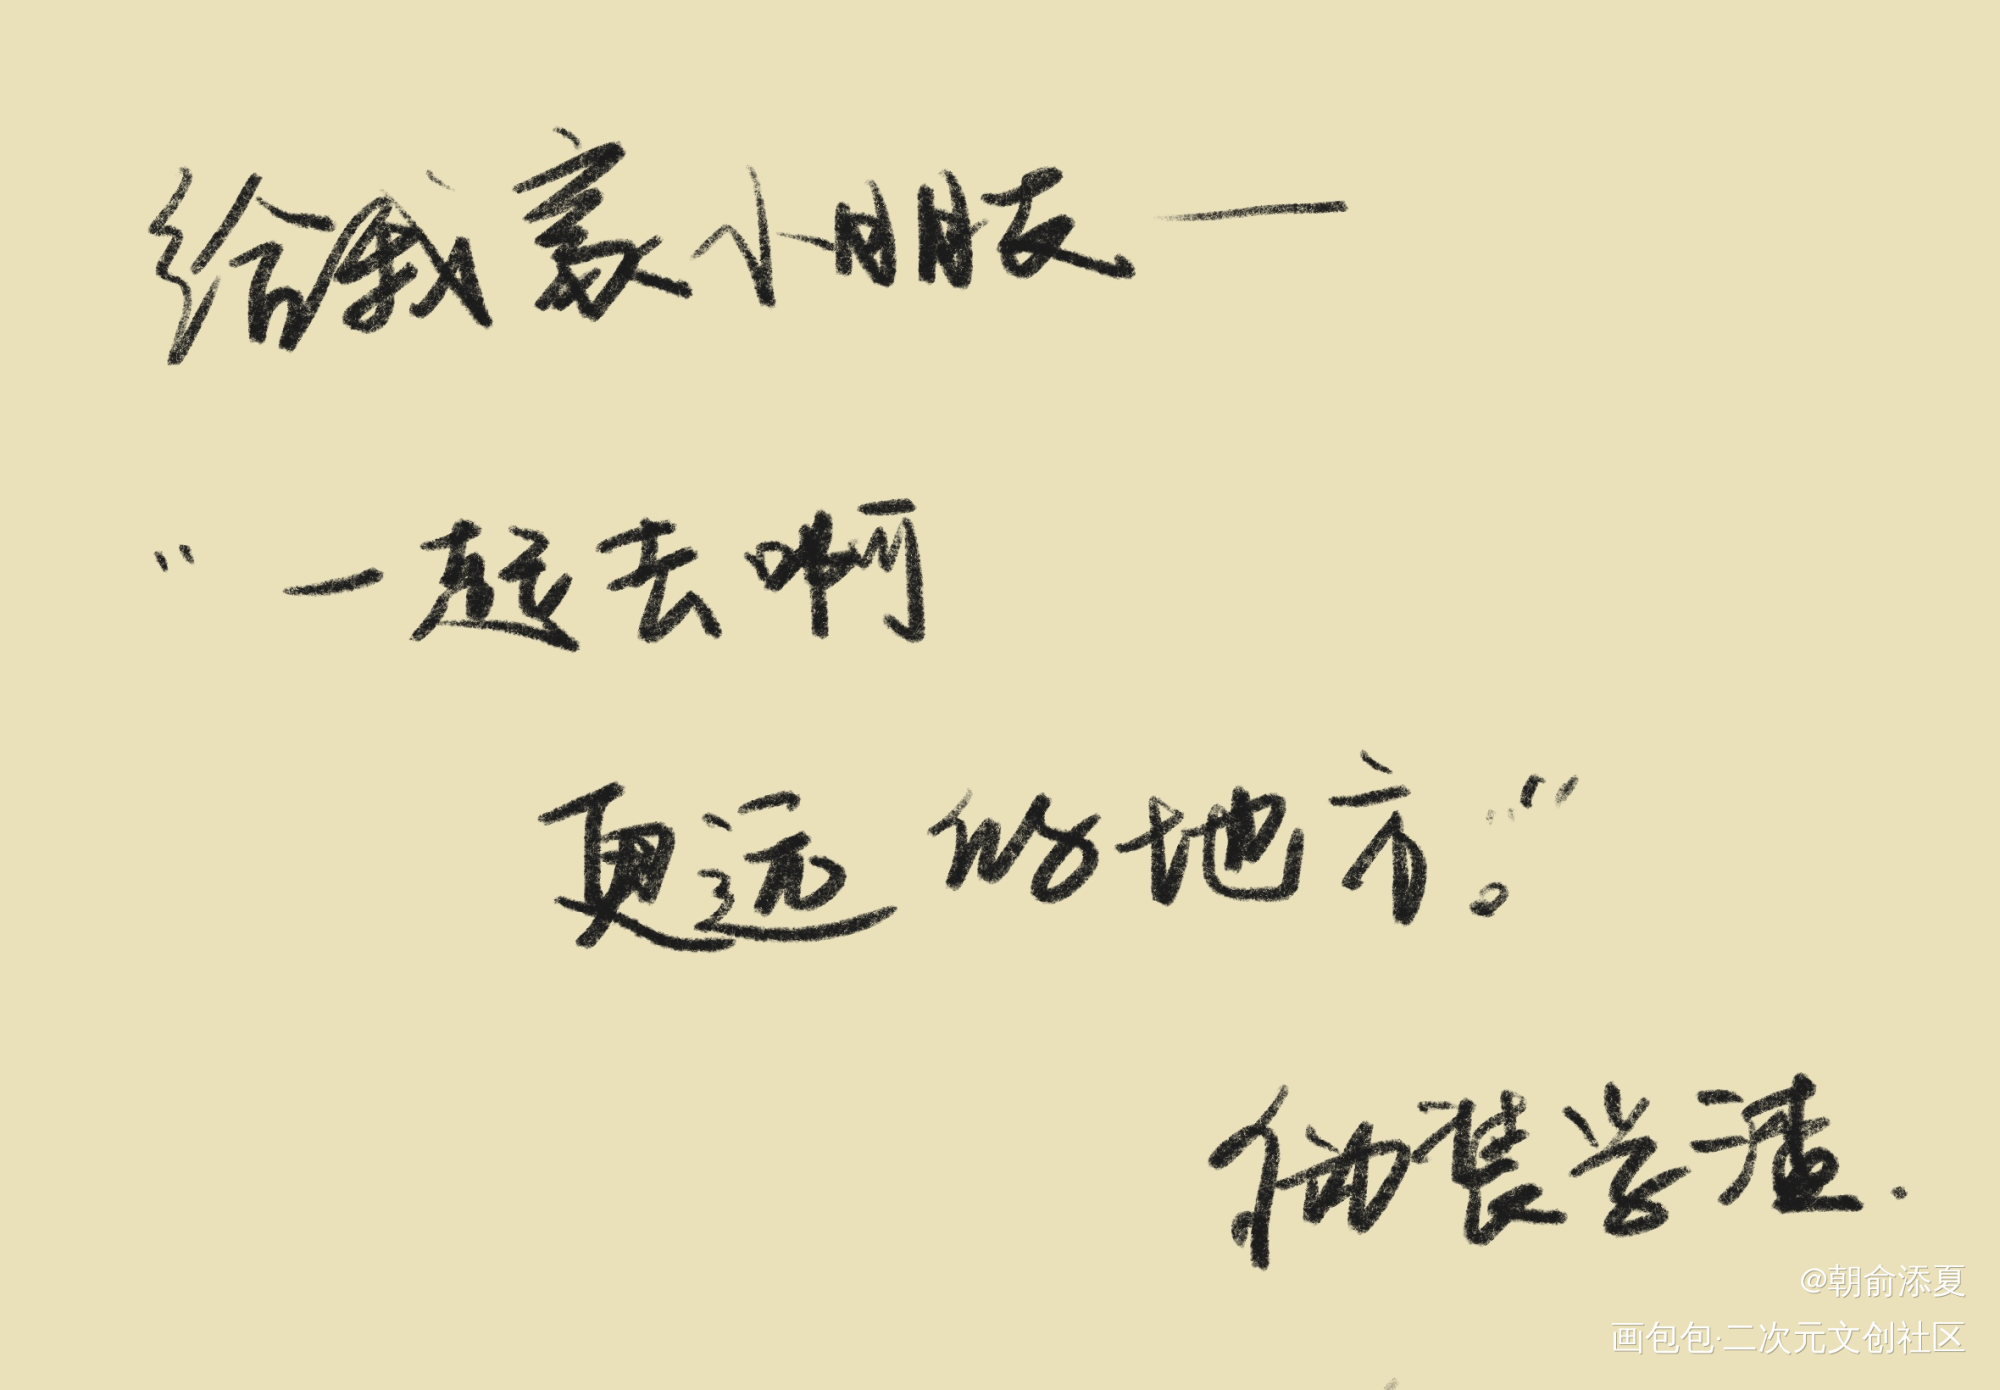 给我家小朋友—
“一起去啊
更远的地方。”
伪装学渣.
@朝俞添夏
画包包·二次元文创社区